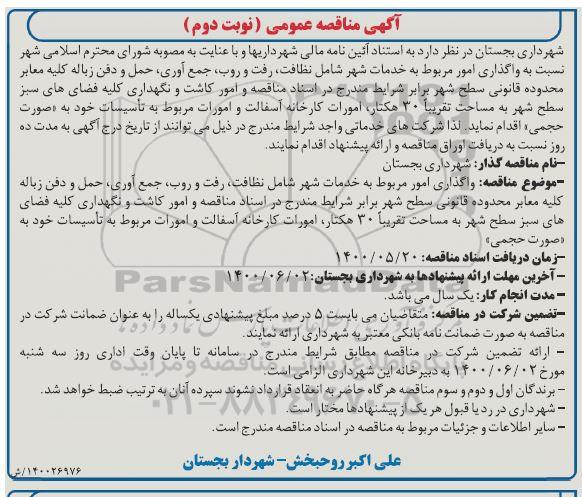 آگهی مناقصه عمومی (نوبت دوم)
شهرداری بجستان در نظر دارد به استناد آئین نامه مالی شهرداریها و با عنایت به مصوبه شورای محترم اسلامی شهر
نسبت به واگذاری امور مربوط به خدمات شهر شامل نظافت، رفت و روب، جمع آوری، حمل و دفن زباله کلیه معابر
محدوده قانونی سطح شهر برابر شرایط مندرج در اسناد مناقصه و امور کاشت و نگهداری کلیه فضای های سبز
سطح شهر به مساحت تقریباً ۳۰ هکتار، امورات کارخانه آسفالت و امورات مربوط به تأسیسات خود به «صورت
حجمی» اقدام نماید. لذا شرکت های خدماتی واجد شرایط مندرج در ذیل می توانند از تاریخ درج آگهی به مدت ده
روز نسبت به دریافت اوراق مناقصه و ارائه پیشنهاد اقدام نمایند.
–نام مناقصه گذار: شهرداری بجستان
–موضوع مناقصه: واگذاری امور مربوط به خدمات شهر شامل نظافت، رفت و روب، جمع آوری، حمل و دفن زباله
کلیه معابر محدوده قانونی سطح شهر برابر شرایط مندرج در اسناد مناقصه و امور کاشت و نگهداری کلیه فضای
های سبز سطح شهر به مساحت تقریباً ۳۰ هکتار، امورات کارخانه آسفالت و امورات مربوط به تأسیسات خود به
«صورت حجمی»
–زمان دریافت اسناد مناقصه: ۱۴۰۰/۰۵/۲۰
– آخرین مهلت ارائه پیشنهادها به شهرداری بجستان: ۱۴۰۰/۰۶/۰۲
– مدت انجام کار: یک سال می باشد.
–تضمین شرکت در مناقصه: متقاضیان می بایست ۵ درصد مبلغ پیشنهادی یکساله را به عنوان ضمانت شرکت در
مناقصه به صورت ضمانت نامه بانکی معتبر به شهرداری ارائه نمایند.
– ارائه تضمین شرکت در مناقصه مطابق شرایط مندرج در سامانه تا پایان وقت اداری روز سه شنبه
مورخ ۱۴۰۰/۰۶/۰۲ به دبیرخانه این شهرداری الزامی است.
– برندگان اول و دوم و سوم مناقصه هرگاه حاضر به انعقاد قرار داد نشوند سپرده آنان به ترتیب ضبط خواهد شد.
– شهرداری در رد یا قبول هر یک از پیشنهادها مختار است.
– سایر اطلاعات و جزئیات مربوط به مناقصه در اسناد مناقصه مندرج است.
علی اکبر روحبخش– شهردار بجستان
۱۴۰۰۲۶۹۷۶/ش
ParsNamadData
۰۲۱-۸۸۳۴۹۶۷۰-۵